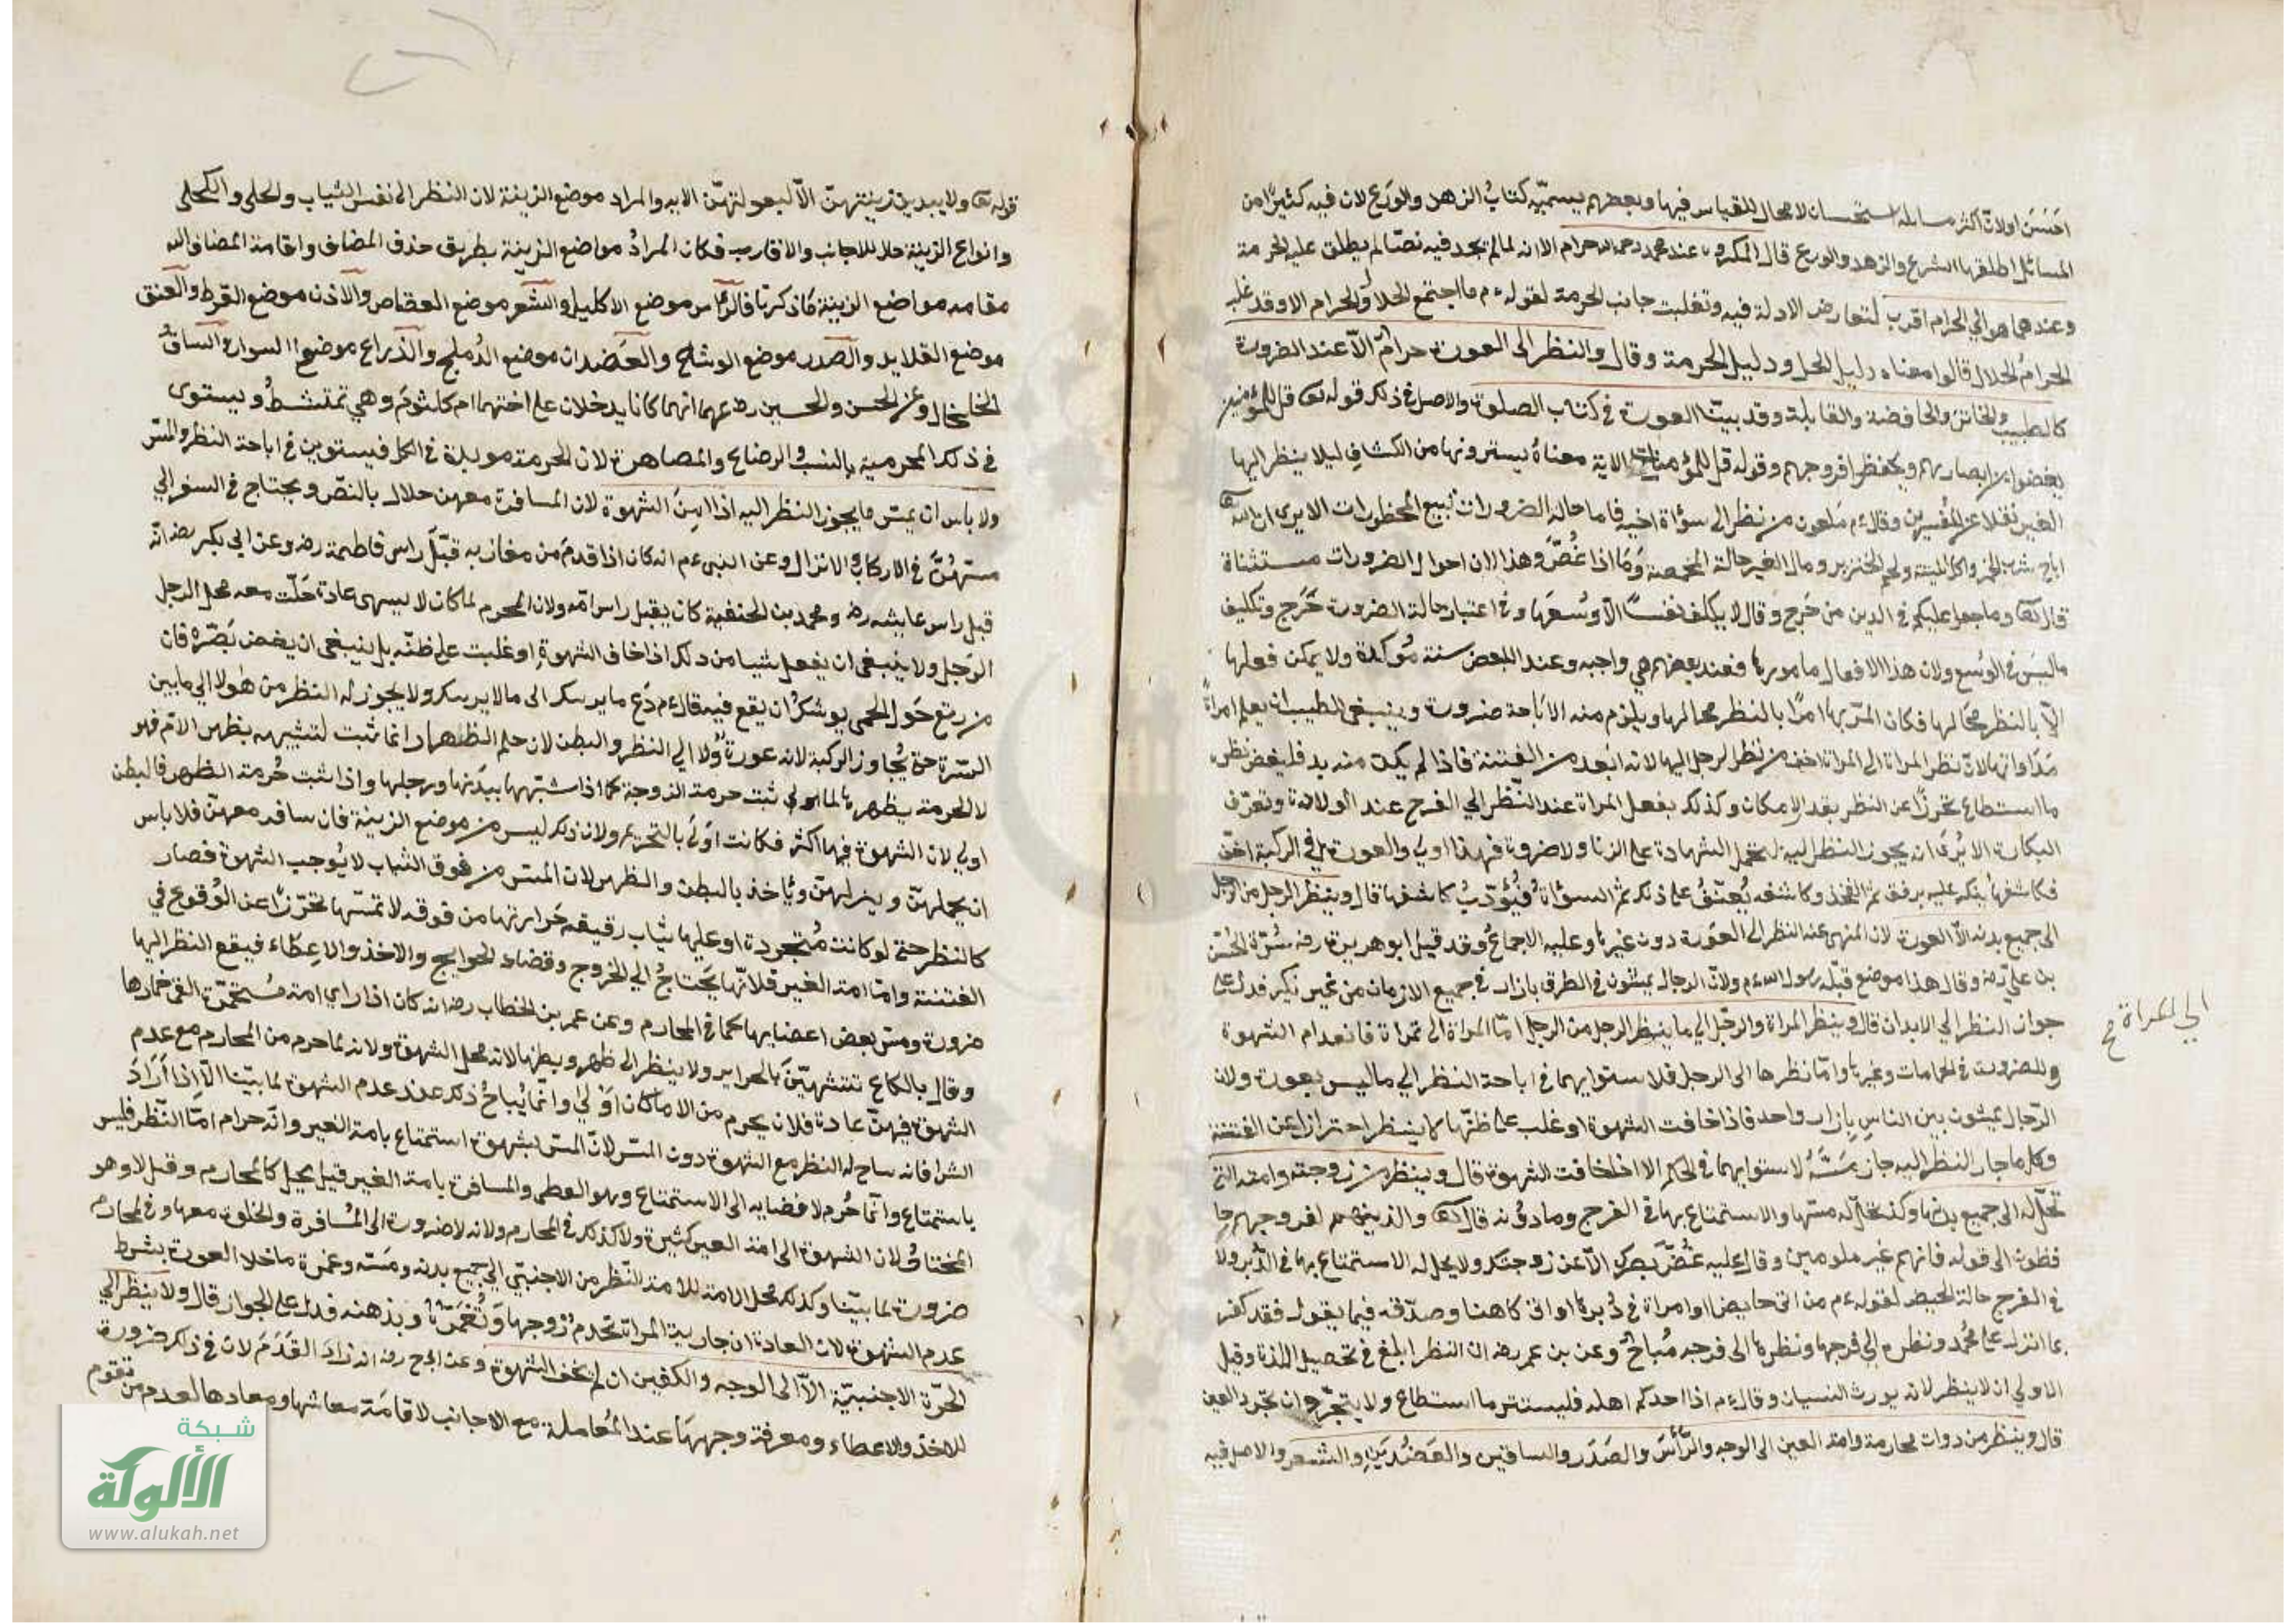 احَسَنَ اولانّ اكثر مسايله استحسان لا مجال للقياس فيها وبعضهم يسميّه كتابُ الزهد والورَع لان فيه كثيرًا من
المسائل اطلقها الشرع والزهد والورع قال المكروه عند محمد رحمه الله حرام الا انه لما لم يجد فيه نصّا لم يطلق عليه الحرمة
وعندهما هو الي الحرام اقرب لتعارض الادلة فيه وتغلبت جانب الحرمة لقوله ءم ما اجتمع الحلال والحرام الا وقد غلب
الحرامُ الحلال قالوا معناه دليل الحل ودليل الحرمة وقال والنظر الى العورة حرامٌ الّا عند الضرورة
كالطبيب والخاتن والخافضة والقابلة وقد بيّنا العورة في كتاب الصلوة والاصل في ذلك قوله تعا قل للمؤمنين
يغضوا من ابصارهم ويحفظوا فروجهم وقوله قل للمؤمنات الاية معناهُ يسترونها من الكشاف ليلا ينظر اليها
الغير نقلا عن المفسرين وقال ءم ملعون من نظر الى سؤاة اخيه فاما حالة الضرورات تبيح المحظورات الا يرى ان الله تعا
اباح شرب الخمر واكل الميتة ولحم الخنزير ومال الغير حالة المخمصة وَمَا اذا غُصَّ وهذا لان احوال الضرورات مستثناة
قال تعا وما جعل عليكم في الدين من حَرج وقال لا يكلف نفسًا الّا وُسْعَها وفي اعتبار حالة الضرورة حَرَج وتكليف
ما ليسَ في الوُسْع ولان هذا الافعال مامور بها فعند بعضهم هي واجبه وعند البعض سنة مُوكدة ولا يمكن فعلها
الّا بالنظر مَحالها فكان الامر بها امرًا بالنظر محالها ويلزم منه الاباحة ضرورة وينبغي للطبيب ان يعلم امراةً
مدَاواتها لانّ نظر المراة الى المراة اخف من نظر الرجل اليها لانه ابْعد من الفتنة فاذا لم يكن منه بد فليغض نظره
ما استطاع تحرزًا عن النظر بقدر الامكان وكذلك يفعل المراة عند النّظر الي الفرج عند الولادة وتعرّف
البكارة الا يُرَى انه يجوز النظر اليه لتحمل الشهادة على الزنا ولا ضرورة فهذا اولي والعورة في الركبة اخفّ
فكاشفها ينكر عليه برفق ثم الفخذ وكاشفه يُعنّفُ على ذلك ثم السؤاة فيُؤدّبُ كاشفها قال وينظر الرجل من الرجل
الى جميع بدنه الّا العورة لان المنهى عنه النظر الى العورة دون غيرها وعليه الاجماعُ وقد قبل ابو هريرة رضه سُرّة الحُسن
بن علي رضه وقال هذا موضع قبّله رسول الله ءم ولانّ الرجال يمشون في الطرق بازار في جميع الازمان من غير نكير فدل على
جواز النظر الي الابدان قال وينظر المراة والرجل الي ما ينظر الرجل من الرجل امّا المراة الى المراة فانعدام الشهوة
الي المراة صح
وللضرورة في الحمامات وغيرها وامّا نظرها الى الرجل فلاستوايهما في اباحة النظر الي ما ليس بعورة ولان
الرّجال يمشون بين الناس بازار واحد فاذا خافت الشهوة او غلب على ظنّها لا ينظر احترازا عن الفتنة
وكل ما جاز النظر اليه جاز مَسّهُ لاستوايهما في الحكم الا اذا خافت الشهوة قال وينظر من زوجته وامته التي
تحلّ له الى جميع بدنها وكذا يحل له مسّها والاستمتاع بها في الفرج وما دونه قال تعا والذين هم لفروجهم حا
فظون الى قوله فانهم غير ملومين وقال عليه غُضّ بصرك الّا عن زوجتك ولا يحل له الاستمتاع بها في الدُّبر ولا
في الفرج حالة الحيض لقوله ءم من اتى حايضا او امراة في دُبرها او اتى كاهنا وصدّقه فيما يقول فقد كفر
بما انزل على محُمّد ونظره الي فرجها ونظرها الى فرجه مُباحٌ وعن بن عمر رضه ان النظر ابلغ في تحصيل اللذة وقيل
الاولي ان لا ينظر لانه يورث النسيان وقال ءم اذا احدكم اهله فليستتر ما استطاع ولا يتجرّدان تجرد العير
قال وينظر من دوات محارمة وامة الغير الى الوجه والرّأس والصَدَر والساقين والعَضُديَن والشعر والاصل فيه
قوله تعا ولا يبدين زينتهنّ الاّ لبعولتهنّ الايه والمراد موضع الزينة لان النظر الى نفس الثياب والحلي والكحل
وانواع الزينة حلال للاجانب والاقارب فكان المرادُ مواضع الزينة بطريق حذف المضاف واقامة المضاف اليه
مقامه مواضع الزينة ما ذكرنا فالرّاس موضع الاكليل والشعر موضع العقاص والاذن موضع القرط والعنق
موضع القلايد والصدر موضع الوشاح والعَضدان موضع الدُملج والذراع موضع السوار والساقُ
الخلخال وعن الحسن والحسين رضه عنهما انهما كانا يدخلان على اختهما ام كلثوم وهي تمتشطُ ويستوى
في ذلك المحرمية بالنسب والرضاع والمصاهرة لان الحرمة موبدة في الكل فيستوين في اباحة النظر والمسّ
ولا باس ان يمسّ ما يجوز النظر اليه اذا امِنَ الشهوة لان المسافرة معهن حلال بالنصّ ويحتاج في السفر الي
مسّهُنَّ في الاركاب والانزال وعن النبي ءم انه كان اذا قدمَ من مغازيه قبّل راس فاطمة رضه وعن ابي بكر رضه انّه
قبل راس عايشه رضه ومحمد بن الحنفية كان يقبل راس امّه ولان المحرم لما كان لا يسهى عادة حَلّت معه محل الرجل
الرَجل ولا ينبغى ان يفعل شيا من ذلك اذا خاف الشهوةِ او غلبت على ظنّه بل ينبغى ان يغض بَصَرَه فان
من رتع حَول الحمى يوشكُ ان يقع فيه قال ءم دَع ما يريبك الى مالا يريبك ولا يجوز له النظر من هولا الي ما بين
السّرة حتى يُجاوز الركبة لانه عورةٌ ولا الي النظر والبطن لان حكم الظهار انما ثبت لتشبيهه بظهر الامّ فهو
لا الحرمة بظهرها لما ثبت حرمة الزوجة كما اذا شبّهها بيدَيها ورجلها واذا ثبت حُرمة الظهر فالبطن
اولي لان الشهوة فيها اكثر فكانت اوَلَى بالتحريم ولان ذلك ليس من موضع الزينة فان سافر معهنّ فلا باس
ان يحملهنّ وينزلهنّ وياخذ بالبطن والظهر لان المسّ من فوق الثياب لا يُوجب الشهوة فصار
كالنظر حتى لو كانت مُتجردة او عليها ثياب رقيقه حَرارتها من فوقه لا تمسّها تحرّزًا عن الوُقوع في
الفتنة وامّا امة الغير فلانّها يَحتاجُ الي الخروج وقضاء الحوايج والاخذ والاعِطاء فيقع النظر اليها
ضرورة ومسّ بعض اعضايها كما في المحارم وعن عمر بن الخطاب رضه انه كان اذا راي امة مُستخمرَة القى خمارها
وقال يالكاع تتشبهيّنَ بالحراير ولا ينظر الى ظهر وبطنها لانه محل الشهوة ولانه لما حرم من المحارم مع عدم
الشهوة فيهنّ عادة فلان يحرم من الاما كان اوْ لي وانمّا يُباحُ ذلك عند عدم الشهوة لما بيّنا الّا اذا أرَادَ
الشرا فانه ساح له النظر مع الشهوة دون المسّ لانّ المسّ بشهوة استمتاع بامة الغير وانّه حرام امّا النّظر فليس
باستمتاع وانّما حُرم لافضايه الى الاستمتاع وهو الوطى والمسافرة بامة الغير قيل يحيل كالمحارم وقيل لا وهو
المختار لان الشهوة الى امة الغير كثيرة ولا كذلك في المحارم ولانه لا ضرورة الى المُسافرة والخلوة معها وفي المحارم
ضرورة لما بيّنا وكذلك محل الامة للامة النّظر من الاجنبّي الي جميع بدنه ومَسّه وغمزه ما خلا العورة بشرط
عدم الشهوة لان العادة ان جارية المراة تخدم زوجها وَتُغمّزهُ وبذهنه فدل على الجواز قال ولا ينظر الي
الحُرّة الاجنبيّة الاّ الى الوجه والكفين ان لم يخف الشهوة وعن ابي ح رضه انه زاد القَدَمَ لان في ذلك ضرورة
للاخذ والاعطاء ومعرفة وجههَا عند المُعاملة مع الاجانب لاقامَة معاشها ومعادها لعدم من تقوم
شبكة
الألوكة
www.alukah.net